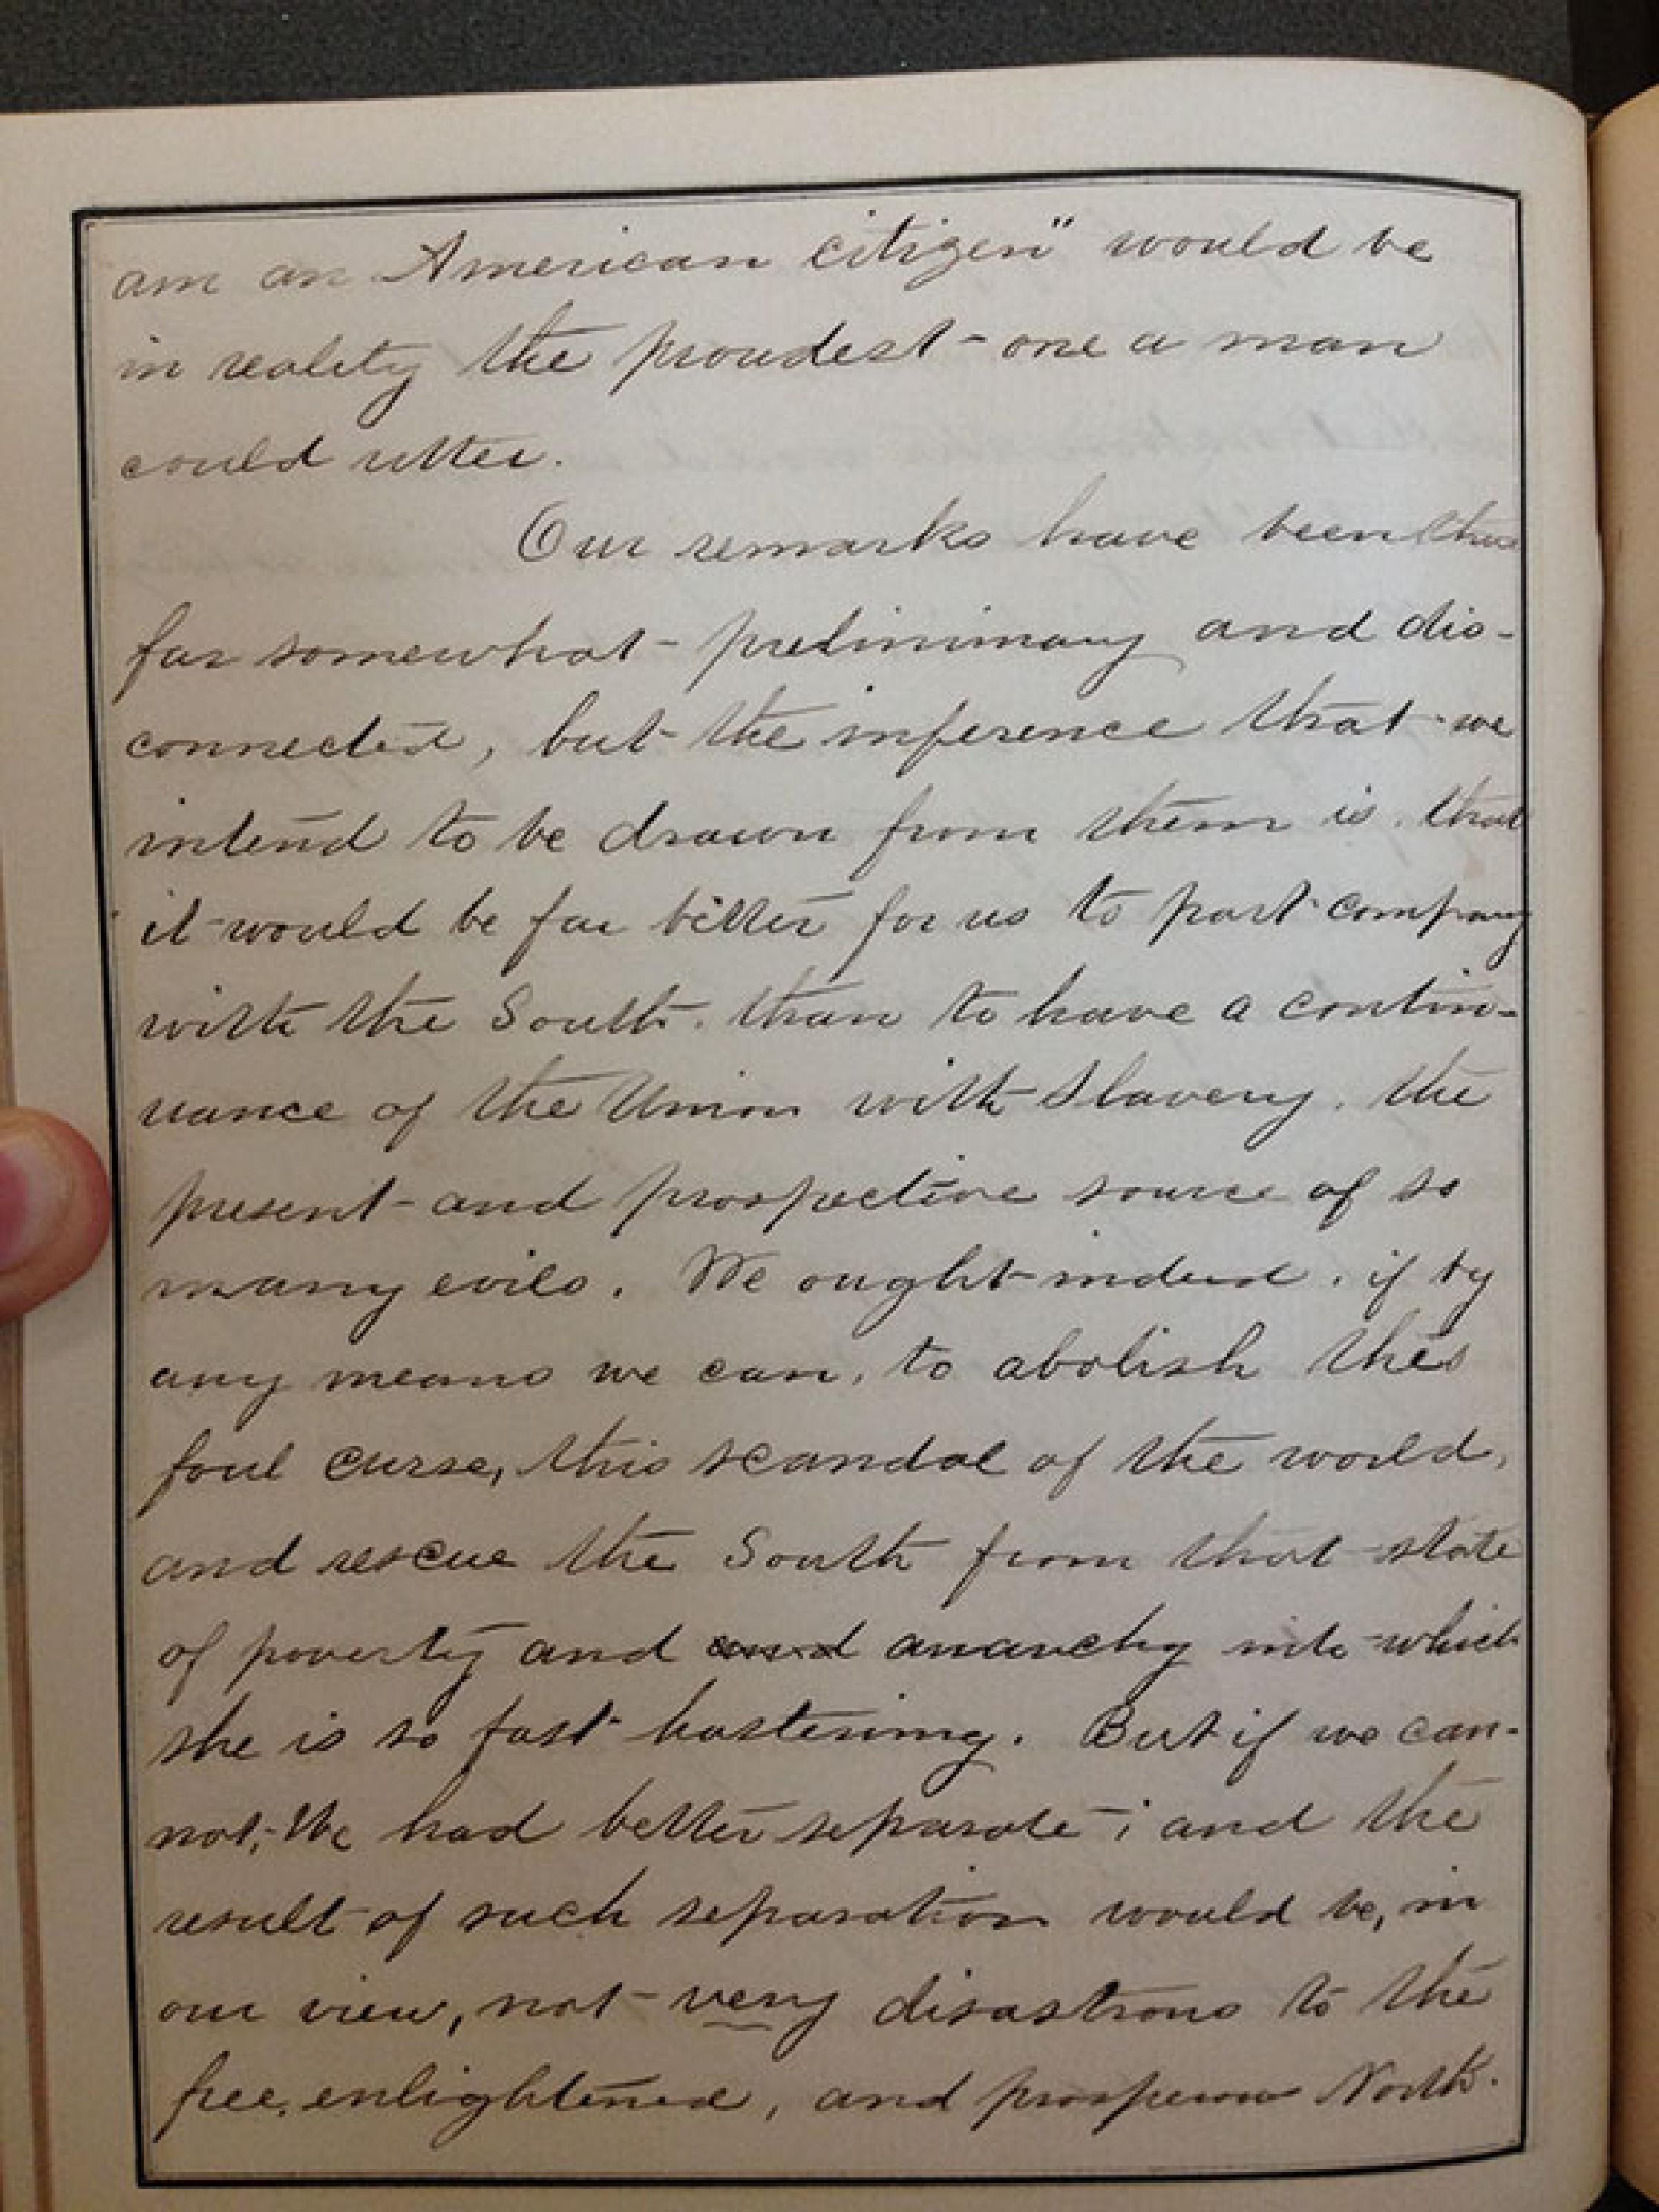 am an American citizen" would be
in reality the proudest one a man
could utter.
Our remarks have been thus
far somewhat preliminary and dis-
connected, but the inference that we
intend to be drawn from them is, that
it would be far better for us to part company
with the South, than to have a contin-
uance of the Union with Slavery, the
present and prospective source of so
many evils. We ought indeed, if by
any means we can, to abolish this
foul curse, this scandal of the world,
and rescue the South from that state
of poverty and and anarchy into which
she is so fast hastening. But if we can-
not, We had better separate; and the
result of such separation would be, in
our view, not very disastrous to the
free, enlightened, and prosperous North.